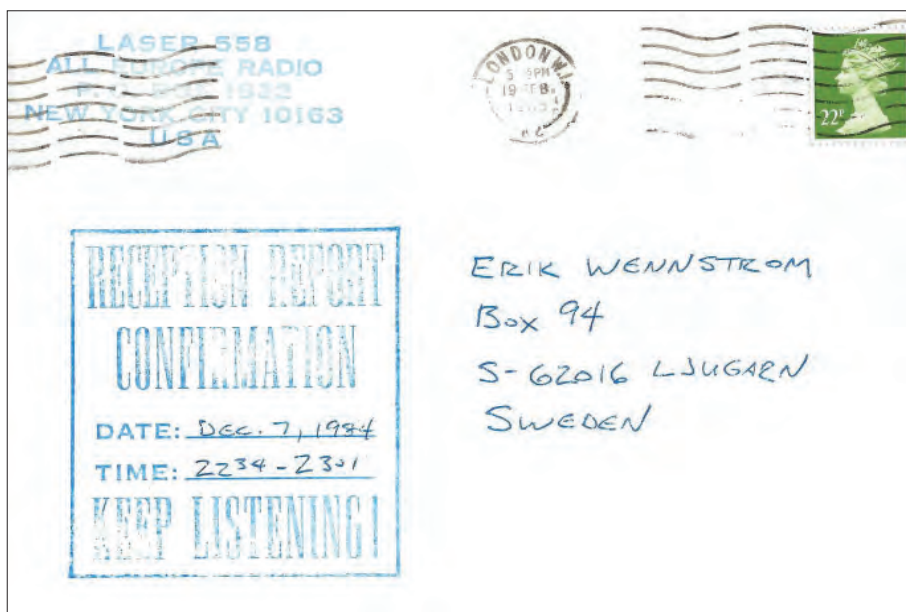 LASER 558
ALL EUROPE RADIO
P. O. BOX 1932
NEW YORK CITY 10163
USA
LONDON W.1
19 FEB
22P
RECEPTION REPORT
CONFIRMATION
DATE: DEC. 7, 1984
TIME: 2234-2301
KEEP LISTENING!
ERIK WENNSTROM
Box 94
S-62016 LJUGARN
SWEDEN